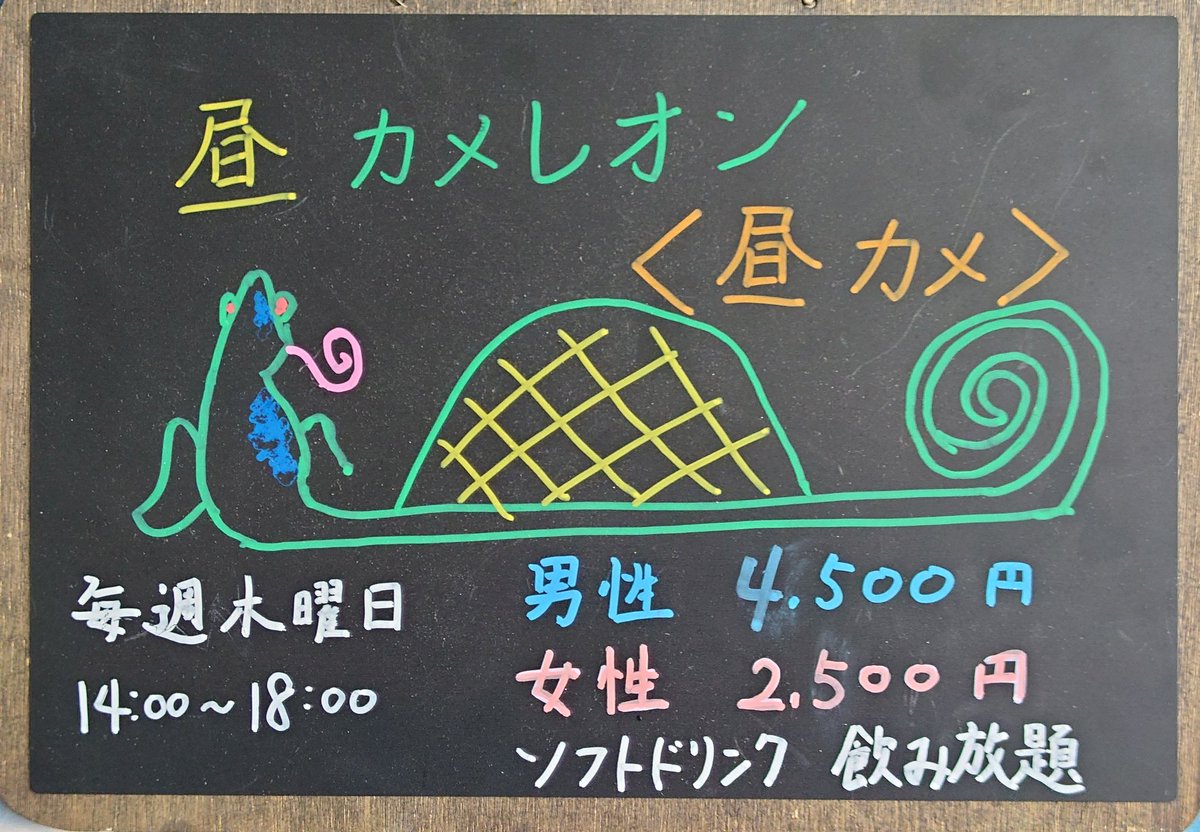 昼 カメレオン
〈昼 カメ〉
毎週木曜日
14:00～18:00
男性 4.500円
女性 2.500円
ソフトドリンク 飲み放題